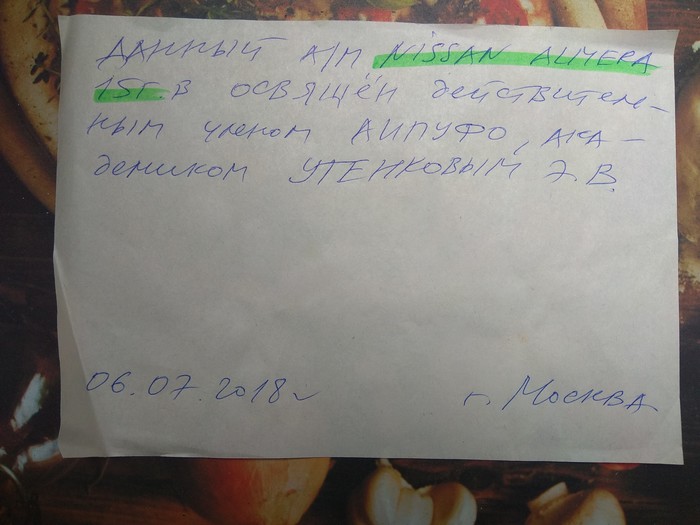 ДАННЫЙ А/М NISSAN ALMERA
15г.в ОСВЯЩЁН действитель-
ным членом АИПУФО, ака-
демиком УТЕНКОВЫМ Э.В.
06.07.2018г
г. Москва